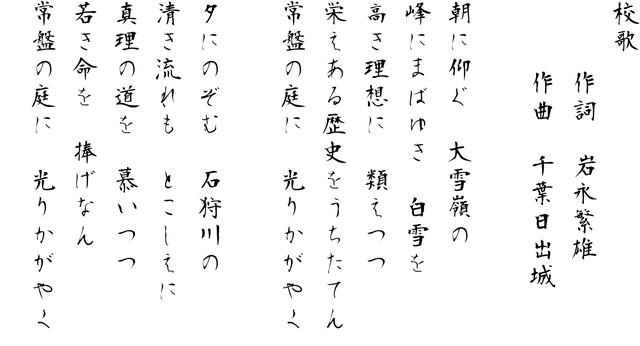 校歌
作詞　岩永繁雄
作曲　千葉日出城
朝に仰ぐ　大雪嶺の
峰にまばゆき　白雪を
高き理想に　類えつつ
栄えある歴史をうちたてん
常盤の庭に　光りかがやく
夕にのぞむ　石狩川の
清き流れも　とこしえに
真理の道を　慕いつつ
若き命を　捧げなん
常盤の庭に　光りかがやく